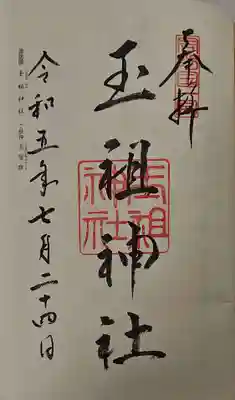 奉拝
玉祖神社
玉祖神社
令和五年七月二十四日